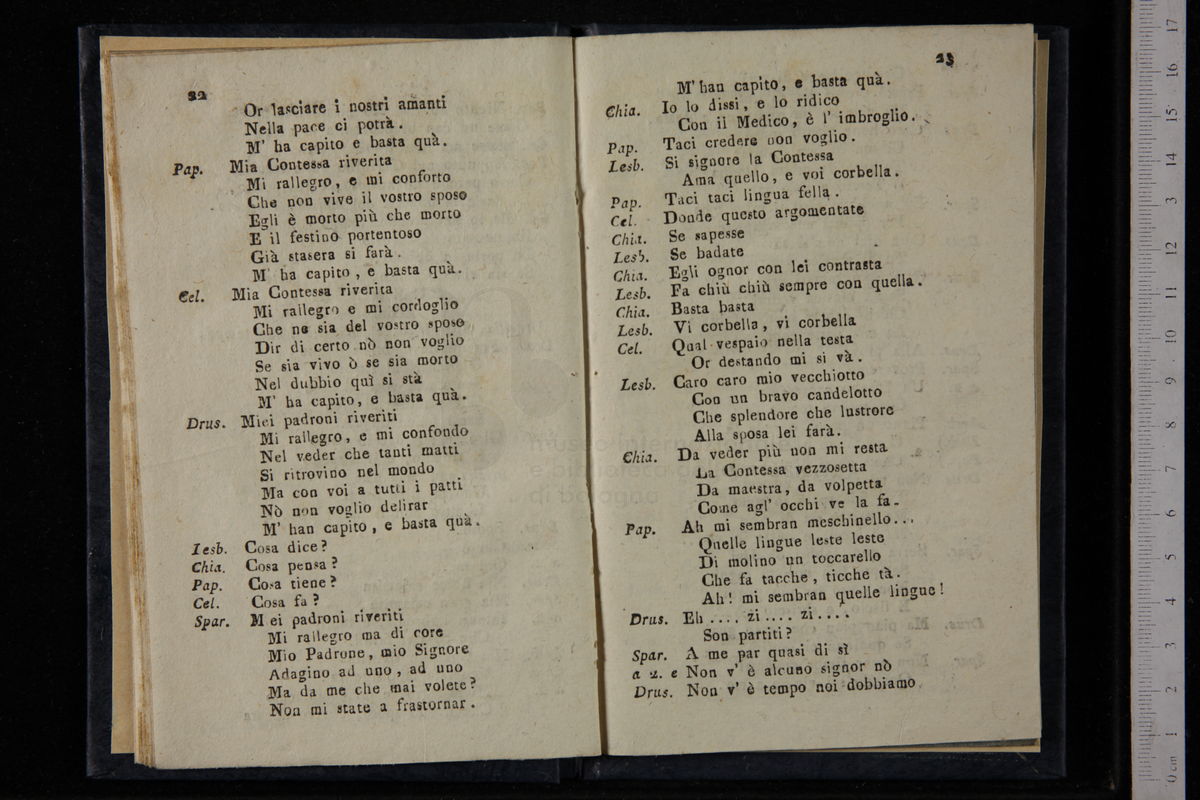 22
Or lasciare i nostri amanti
Nella pace ci potrà.
M' ha capito e basta quà.
Pap. Mia Contessa riverita
Mi rallegro, e mi conforto
Che non vive il vostro sposo
Egli è morto più che morto
E il festino portentoso
Già stasera si farà.
M' ha capito, e basta quà.
Cel. Mia Contessa riverita
Mi rallegro e mi cordoglio
Che ne sia del vostro sposo
Dir di certo nò non voglio
Se sia vivo ò se sia morto
Nel dubbio quì si stà
M' ha capito, e basta quà.
Drus. Miei padroni riveriti
Mi rallegro, e mi confondo
Nel veder che tanti matti
Si ritrovino nel mondo
Ma con voi a tutti i patti
Nò non voglio delirar
M' han capito, e basta quà.
Lesb. Cosa dice?
Chia. Cosa pensa?
Pap. Cosa tiene?
Cel. Cosa fa?
Spar. M ei padroni riveriti
Mi rallegro ma di core
Mio Padrone, mio Signore
Adagino ad uno, ad uno
Ma da me che mai volete?
Non mi state a frastornar.
23
M' han capito, e basta quà.
Chia. Io lo dissi, e lo ridico
Con il Medico, è l' imbroglio.
Pap. Taci credere non voglio.
Lesb. Si signore la Contessa
Ama quello, e voi corbella.
Pap. Taci taci lingua fella.
Cel. Donde questo argomentate
Chia. Se sapesse
Lesb. Se badate
Chia. Egli ognor con lei contrasta
Lesb. Fa chiù chiù sempre con quella.
Chia. Basta basta
Lesb. Vi corbella, vi corbella
Cel. Qual vespaio nella testa
Or destando mi si và.
Lesb. Caro caro mio vecchiotto
Con un bravo candelotto
Che splendore che lustrore
Alla sposa lei farà.
Chia. Da veder più non mi resta
La Contessa vezzosetta
Da maestra, da volpetta
Come agl' occhi ve la fa.
Pap. Ah mi sembran meschinello...
Quelle lingue leste leste
Di molino un toccarello
Che fa tacche, ticche tà.
Ah! mi sembran quelle lingue!
Drus. Eh .... zi .... zi ....
Son partiti?
Spar. A me par quasi di sì
a 2. e Non v' è alcuno signor nò
Drus. Non v' è tempo noi dobbiamo